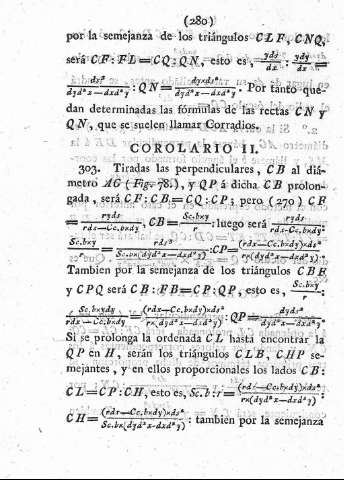 (280)
por la semejanza de los triángulos CLF, CNQ,
será CF:FL=CQ:QN, esto es, yds/dx : ydy/dx =
ds²/dyd²x—dxd²y : QN = dyxds²/dyd²x—dxd²y. Por tanto que-
dan determinadas las fórmulas de las rectas CN y
QN, que se suelen llamar Corradios.
COROLARIO II.
303. Tiradas las perpendiculares, CB al diá-
metro AG (Fig. 78.), y QP á dicha CB prolon-
gada, será CF:CB=CQ:CP; pero (270) CF
= ryds/rdx—Cc.bxdy, CB= Sc.bxy/r : luego será ryds/rdx-Cc.bxdy :
Sc.bxy/r = rds³/Sc.bx(dyd²x—dxd²y) : CP= (rdx—Cc.bxdy)xds²/rx(dyd²x—dxd²y).
Tambien por la semejanza de los triángulos CBF
y CPQ será CB:FB=CP:QP, esto es, Sc.bxy/r :
Sc.bxydy/rdx—Cc.bxdy = (rdx—Cc.bxdy)xds²/rx(dyd²x—dxd²y) : QP= dyds²/dyd²x—dxd²y.
Si se prolonga la ordenada CL hasta encontrar la
QP en H, serán los triángulos CLB, CHP se-
mejantes, y en ellos proporcionales los lados CB:
CL=CP:CH, esto es, Sc.b:r= (rdx—Cc.bxdy)xds²/rx(dyd²x—dxd²y) :
CH= (rdx—Cc.bxdy)xds²/Sc.bx(dyd²x-dxd²y) : tambien por la semejanza